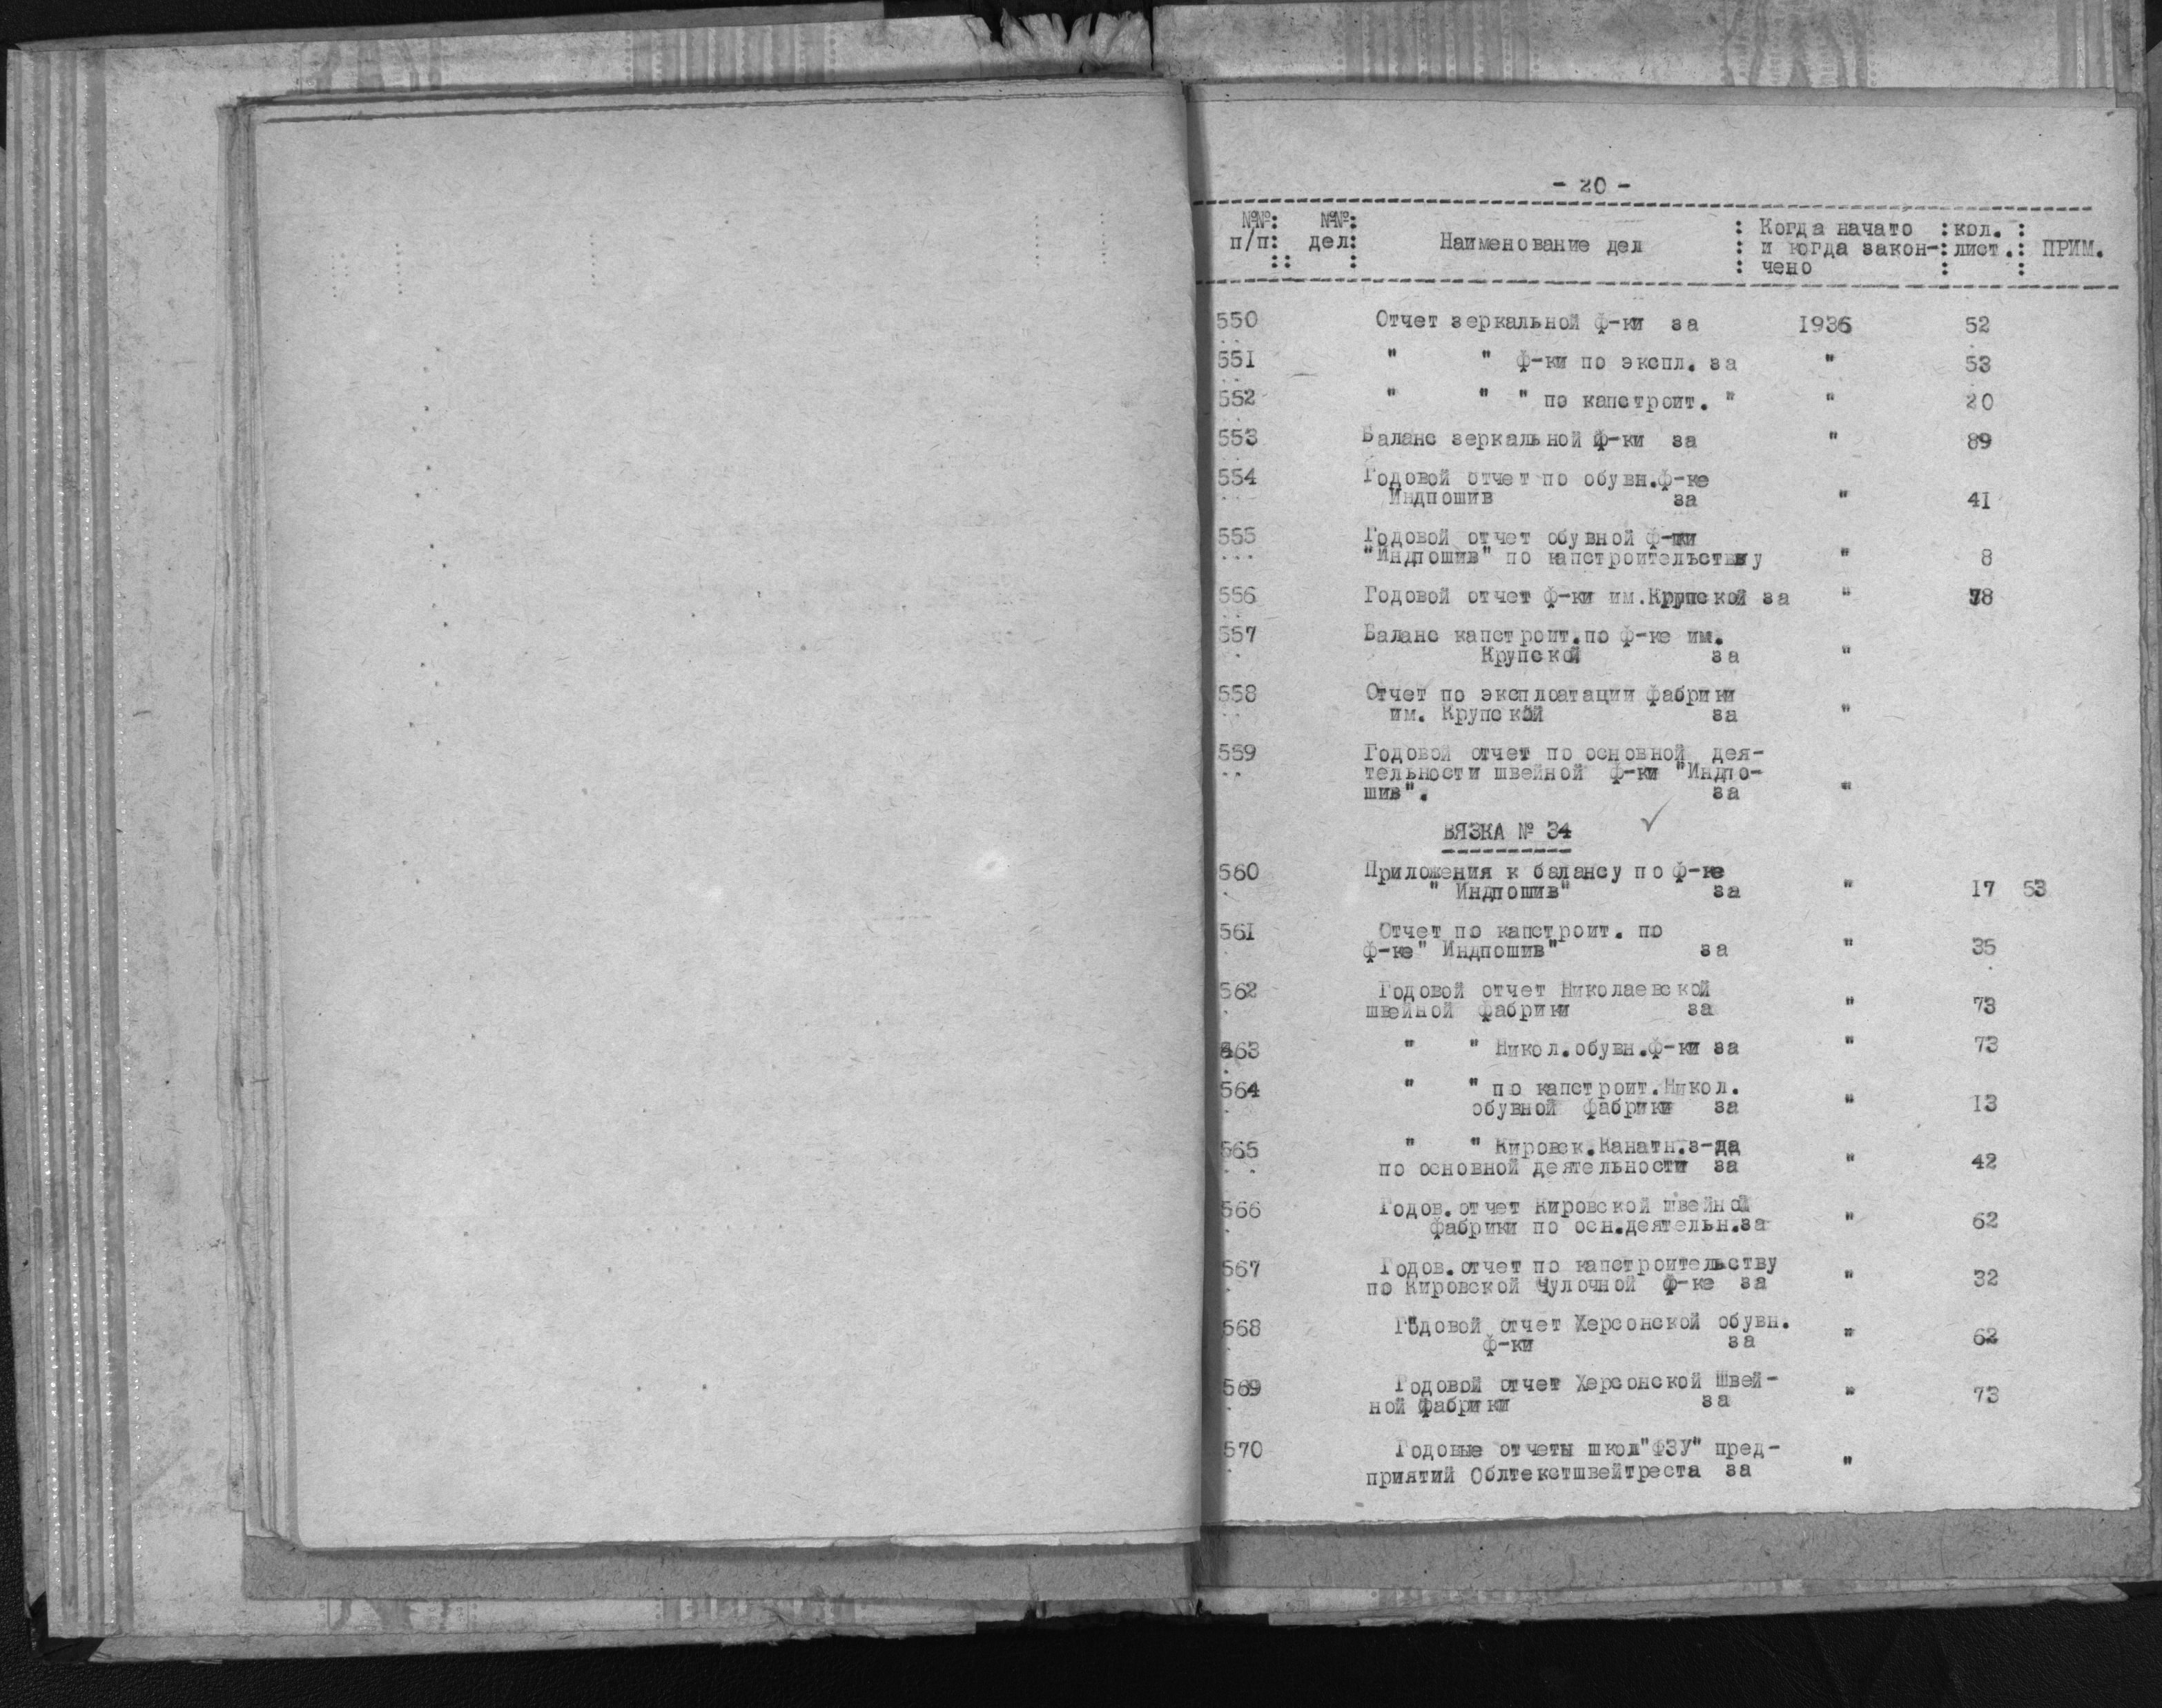 - 20 -
№№: №№: : Когда начато :кол. :
п/п: дел: Наименование дел : и когда закон-:лист.: ПРИМ.
:: : : чено : :
550 Отчет зеркальной ф-ки за 1936 52
551 " " ф-ки по экспл. за " 53
552 " " " по капстроит. " " 20
553 Баланс зеркальной ф-ки за " 89
554 Годовой отчет по обувн.ф-ке
Индпошив за " 41
555 Годовой отчет обувной ф-ки
"Индпошив" по капстроительству " 8
556 Годовой отчет ф-ки им.Крупской за " 38
557 Баланс капстроит.по ф-ке им.
Крупской за "
558 Отчет по эксплоатации фабрики
им. Крупской за "
559 Годовой отчет по основной дея-
тельности швейной ф-ки "Индпо-
шив". за "
ВЯЗКА № 34
560 Приложения к балансу по ф-ке
" Индпошив" за " 17 53
561 Отчет по капстроит. по
ф-ке" Индпошив" за " 35
562 Годовой отчет Николаевской
швейной фабрики за " 73
563 " " Никол.обувн.ф-ки за " 73
564 " " по капстроит.Никол.
обувной фабрики за " 13
565 " " Кировск.Канатн.з-да
по основной деятельности за " 42
566 Годов.отчет Кировской швейной
фабрики по осн.деятельн.за " 62
567 Годов.отчет по капстроительству
по Кировской Чулочной ф-ке за " 32
568 Годовой отчет Херсонской обувн.
ф-ки за " 62
569 Годовой отчет Херсонской Швей-
ной фабрики за " 73
570 Годовые отчеты школ"ФЗУ" пред-
приятий Облтекстшвейтреста за "